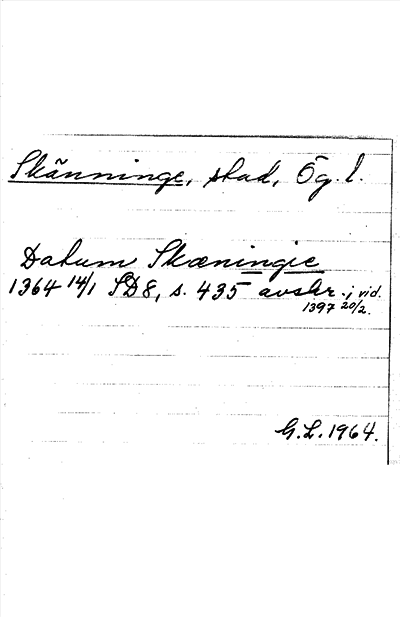 Skänninge, stad, Ög. l.
Datum Skæningie
1364 14/1 SD8, s. 435 avskr. i vid.
1397 20/2.
G.L. 1964.